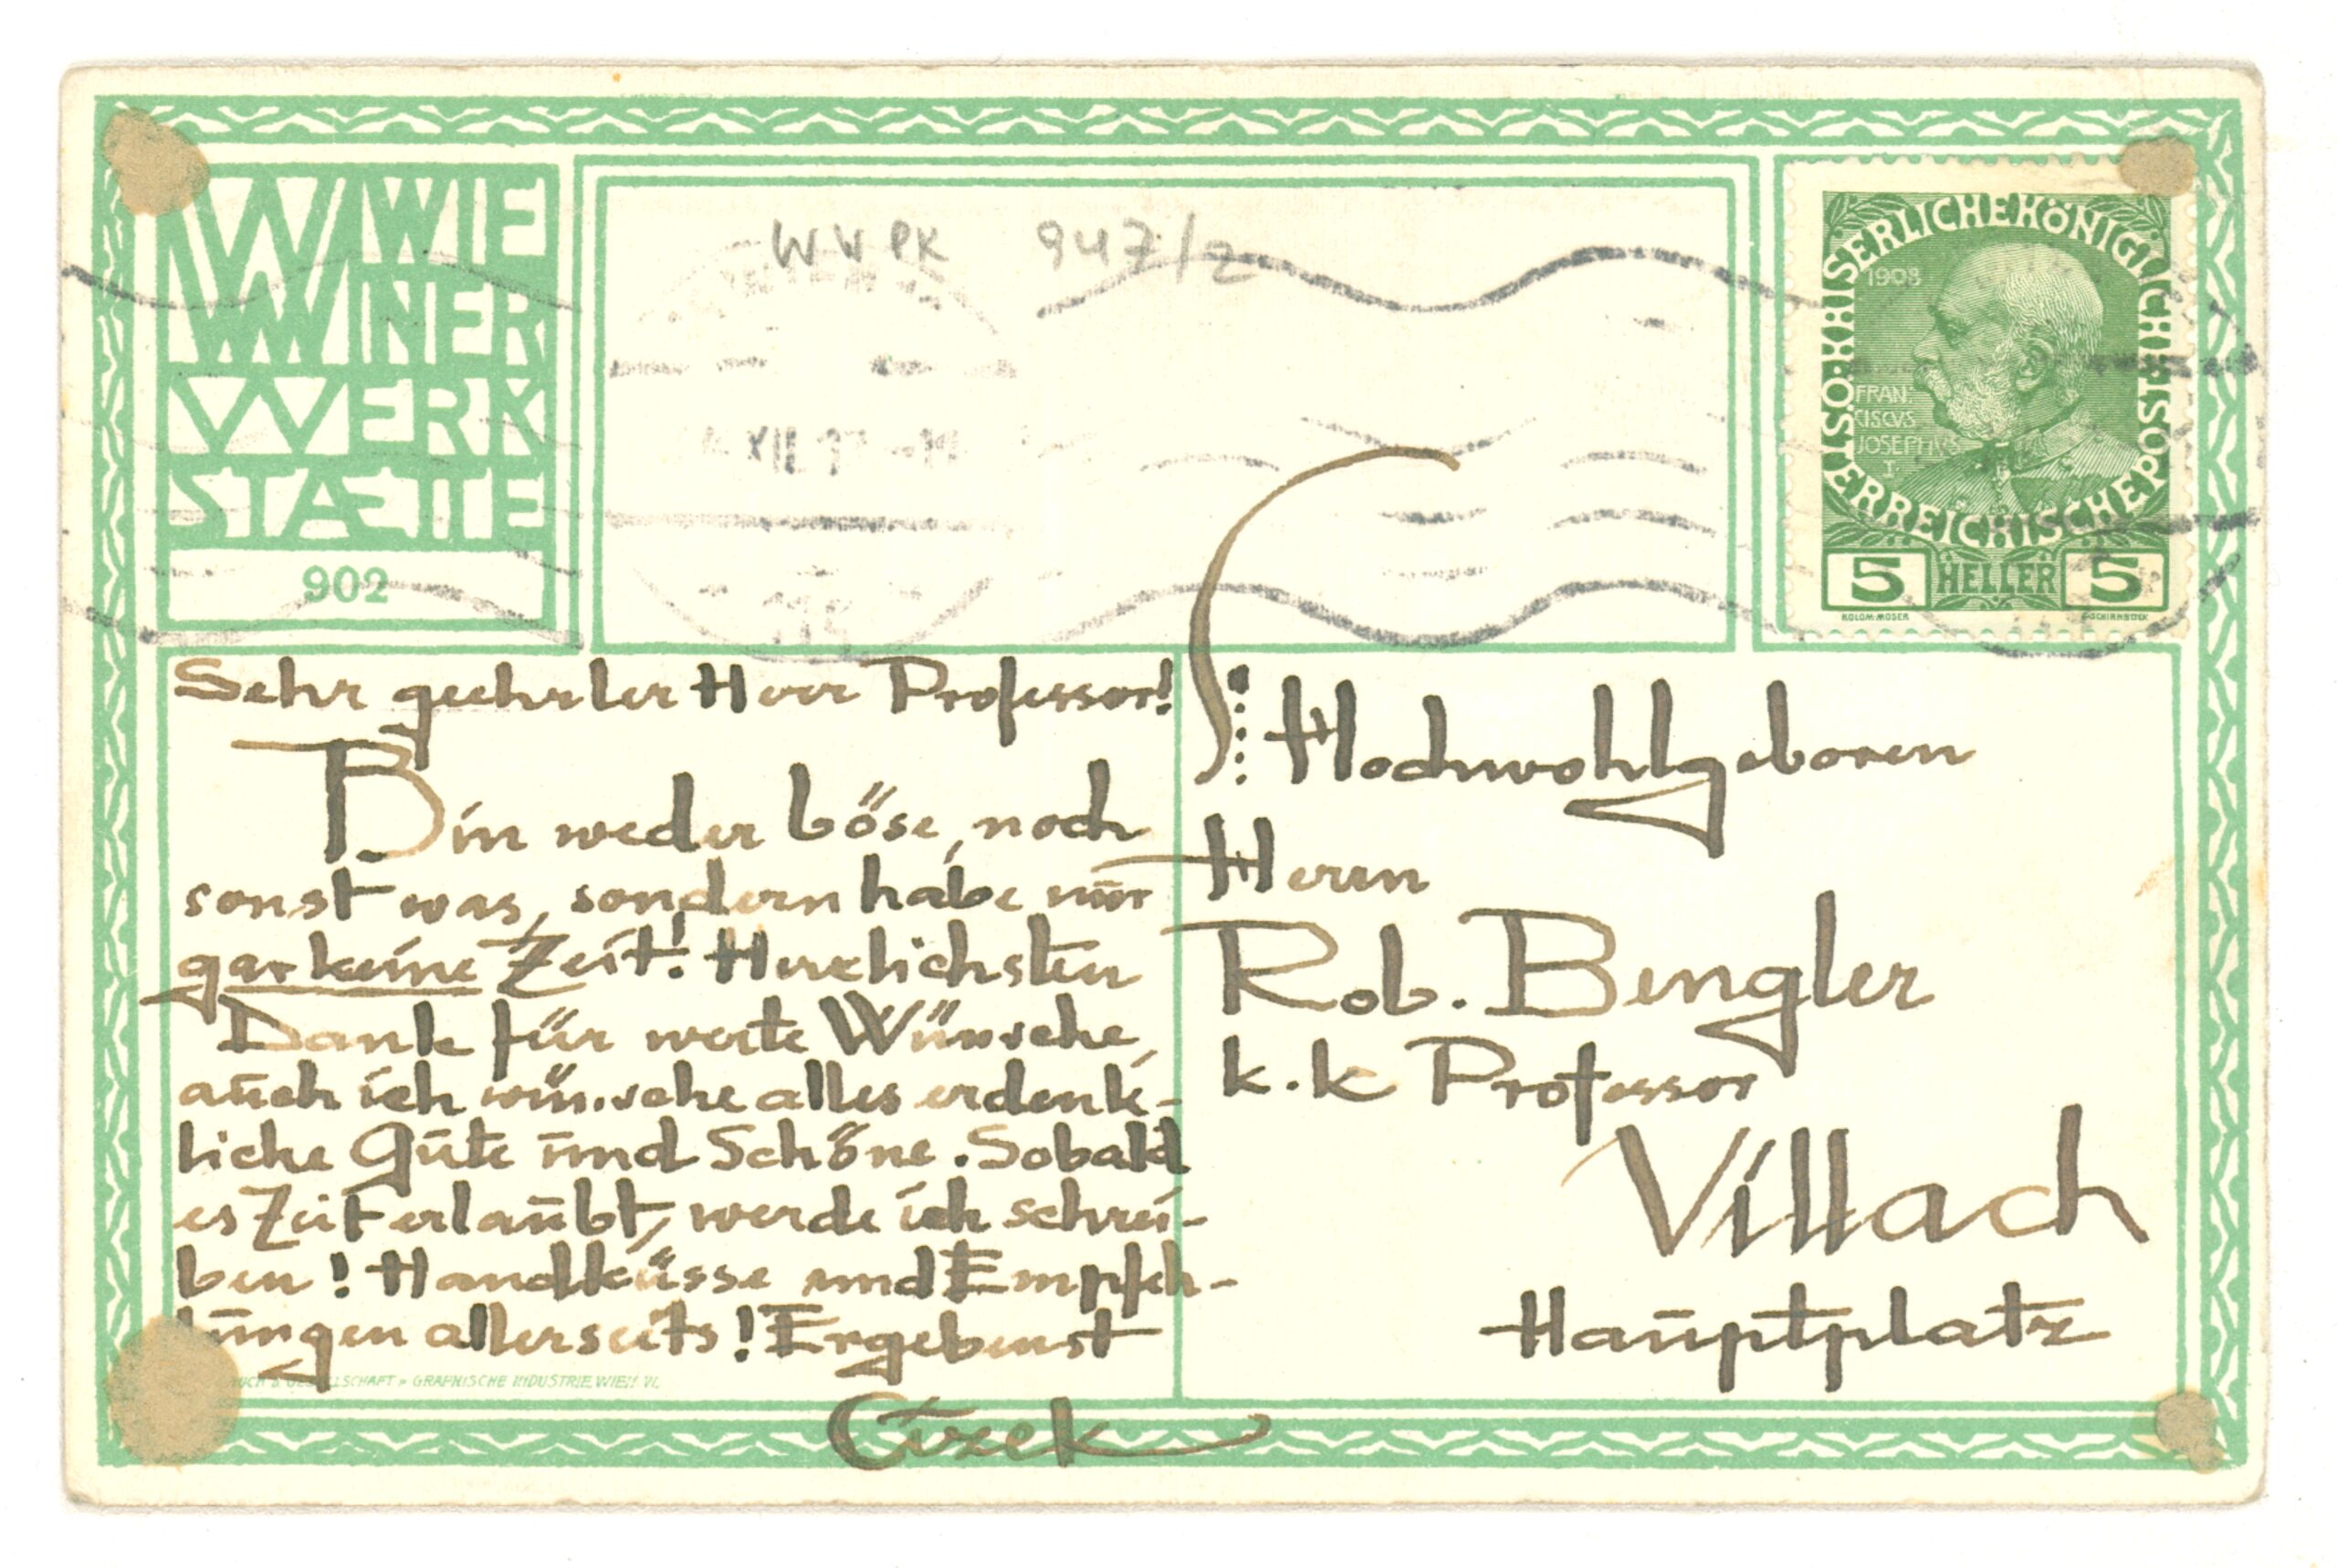 WIE
NER
WERK
STÆTTE
902
WW PK 947/2
XII
KAISERLICHEKÖNIGLICHE ÖSTERREICHISCHE POST
1908
FRAN
CISCVS
JOSEPHVS
I
5 HELLER 5
KOLOM·MOSER
Sehr geehrter Herr Professor!
Bin weder böse, noch
sonst was, sondern habe nur
gar keine Zeit! Herzlichsten
Dank für werte Wünsche,
auch ich wünsche alles erdenk-
liche Gute und Schöne. Sobald
es Zeit erlaubt, werde ich schrei-
ben! Handküsse und Empfeh-
lungen allerseits! Ergebenst
Cizek
GESELLSCHAFT » GRAPHISCHE INDUSTRIE, WIEN VI.
Hochwohlgeboren
Herrn
Rob. Bengler
k.k Professor
Villach
Hauptplatz